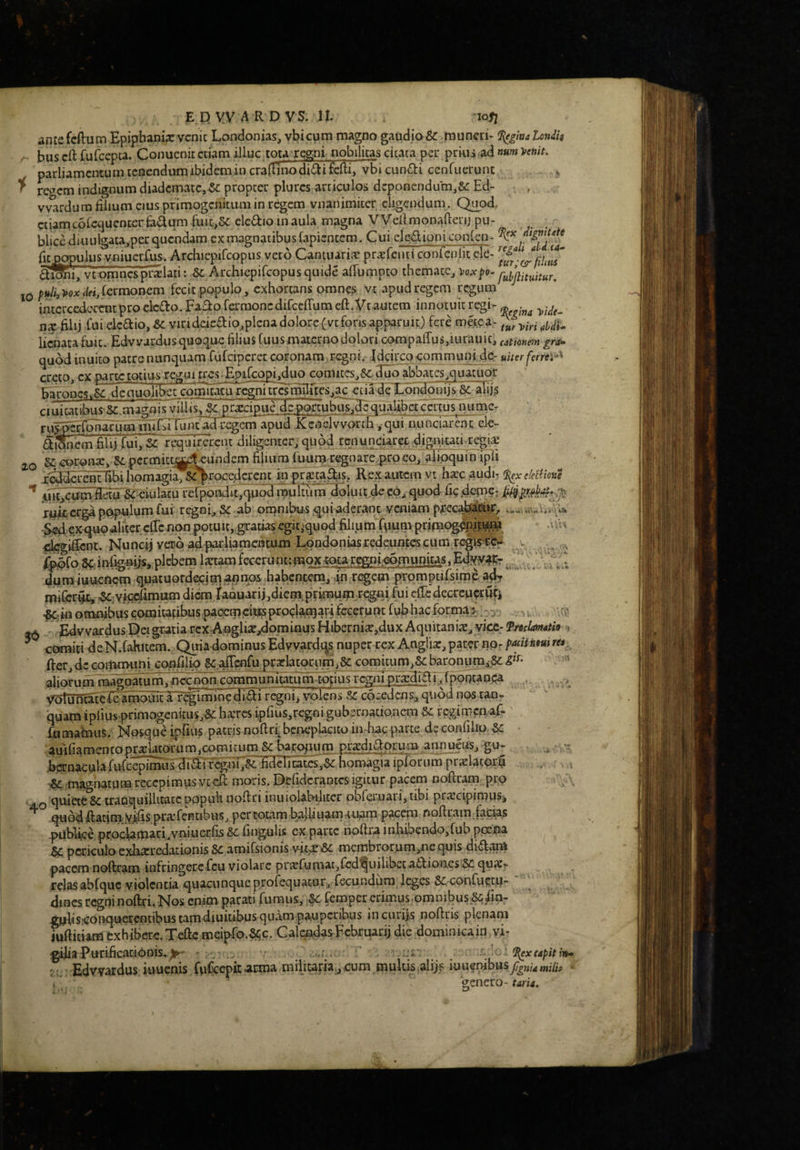 EDVVARDVS. II.
ante festum Epiphaniæ venit Londonias, vbi cum magno gaudio & muneri- Regina Londiis
bus est suscepta. Conuenit etiam illuc tota regni nobilitas citata per prius ad num venit.
parliamentum tenendum ibidem in crastino dicti festi, vbi cuncti censuerunt
regem indignum diademate, & propter plures articulos deponendum, & Ed-
vvardum filium eius primogenitum in regem vnanimiter eligendum. Quod
etiam cōsequenter factum fuit, & electio in aula magna VVestmonasterij pu-
blicè diuulgata, per quendam ex magnatibus sapientem. Cui electioni consen- Rex dignitate
sit populus vniuersus. Archiepiscopus verò Cantuariæ præsenti consensit ele- regali abdica-
ctioni, vt omnes prælati: & Archiepiscopus quidē assumpto themate, vox po- tur, & filius
10 puli, vox dei, sermonem fecit populo, exhortans omnes vt apud regem regum substituitur.
intercederent pro electo. Facto sermone discessum est. Vt autem innotuit regi- Regina vide-
næ filij sui electio, & viri deiectio, plena dolore (vt foris apparuit) ferè mēte a- tur viri abdi-
lienata fuit. Edvvardus quoque filius suus materno dolori compassus, iurauit, cationem gra-
quòd inuito patre nunquam susciperet coronam regni. Idcirco communi de- uiter ferre.
creto, ex parte totius regni tres Episcopi, duo comites, & duo abbates, quatuor
barones, & de quolibet comitatu regni tres milites, ac etiā de Londonijs & alijs
ciuitatibus & magnis villis, & præcipuè de portubus, de qualibet certus nume-
rus personarum missi sunt ad regem apud Kenelvvorth, qui nunciarent ele-
ctionem filij sui, & requirerent diligenter, quòd renunciaret dignitati regiæ
20 & coronæ, & permitteret eundem filium suum regnare pro eo, alioquin ipsi
redderent sibi homagia, & procederent in prætactis. Rex autem vt hæc audi- Rex electionē
uit, cum fletu & eiulatu respondit, quod multùm doluit de eo, quod sic deme- filij probat.
ruit ergà populum sui regni, & ab omnibus qui aderant veniam precabatur,
Sed ex quo aliter esse non potuit, gratias egit, quod filium suum primogenitum
elegissent. Nuncij verò ad parliamentum Londonias redeuntes cum regis re-
sponso & insignijs, plebem lætam fecerunt: mox tota regni communitas, Edvvar-
dum iuuenem quatuordecim annos habentem, in regem promptissimè ad-
miserūt, & vicesimum diem Ianuarij, diem primum regni sui esse decreuerūt,
& in omnibus comitatibus pacem eius proclamari fecerunt sub hac forma:
30 Edvvardus Dei gratia rex Angliæ, dominus Hiberniæ, dux Aquitaniæ, vice- Proclamatio
comiti de N. salutem. Quia dominus Edvvardus nuper rex Angliæ, pater no- pacis noui re-
ster, de communi consilio & assensu prælatorum, & comitum, & baronum, & gis.
aliorum magnatum, necnon communitatum totius regni prædicti, spontanea
voluntate se amouit à regimine dicti regni, volens & cōcedens, quòd nos tan-
quam ipsius primogenitus, & hæres ipsius, regni gubernationem & regimen as-
sumamus. Nosquè ipsius patris nostri beneplacito in hac parte de consilio &
auisiamento prælatorum, comitum & baronum prædictorum annuens, gu-
bernacula suscepimus dicti regni, & fidelitates, & homagia ipsorum prælatorū
& magnatum recepimus vt est moris. Desiderantes igitur pacem nostram pro
40 quiete & tranquillitate populi nostri inuiolabiliter obseruari, tibi præcipimus,
quòd statim visis præsentibus, per totam balliuam tuam pacem nostram facias
publicè proclamari, vniuersis & singulis ex parte nostra inhibendo, sub pœna
& periculo exhæredationis & amissionis vitæ & membrorum, ne quis dictam
pacem nostram infringere seu violare præsumat, sed quilibet actiones & quæ-
relas absque violentia quacunque prosequatur, secundùm leges & consuetu-
dines regni nostri. Nos enim parati sumus, & semper erimus omnibus & sin-
gulis conquerentibus tam diuitibus quàm pauperibus in curijs nostris plenam
iustitiam exhibere. Teste meipso. &c. Calendas Februarij die dominica in vi-
gilia Purificationis. Rex capit in-
Edvvardus iuuenis suscepit arma militaria, cum multis alijs iuuenibus signia mili-
genero- taria.